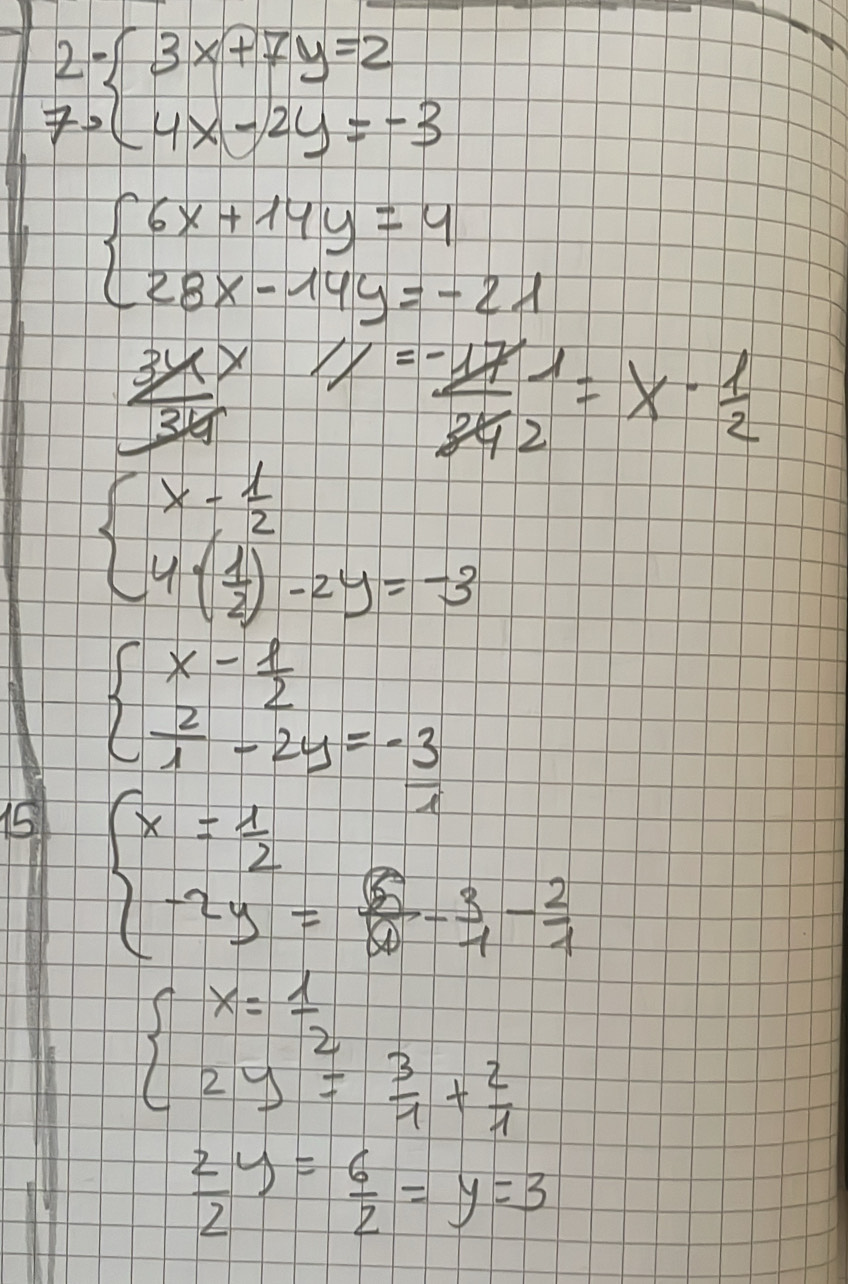 2· { 3x+7y=2
7· { 4x-2y=-3
{ 6x+14y=4
{ 28x-14y=-21
34x/34 // = -17/34 1/2 = x - 1/2
{ x - 1/2
{ 4·(1/2) -2y=-3
{ x - 1/2
{ 2/1 - 2y=-3/1
15
{ x = 1/2
{ -2y = - 3/1 - 2/1
{ x = 1/2
{ 2y = 3/1 + 2/1
2/2 y = 6/2 = y=3